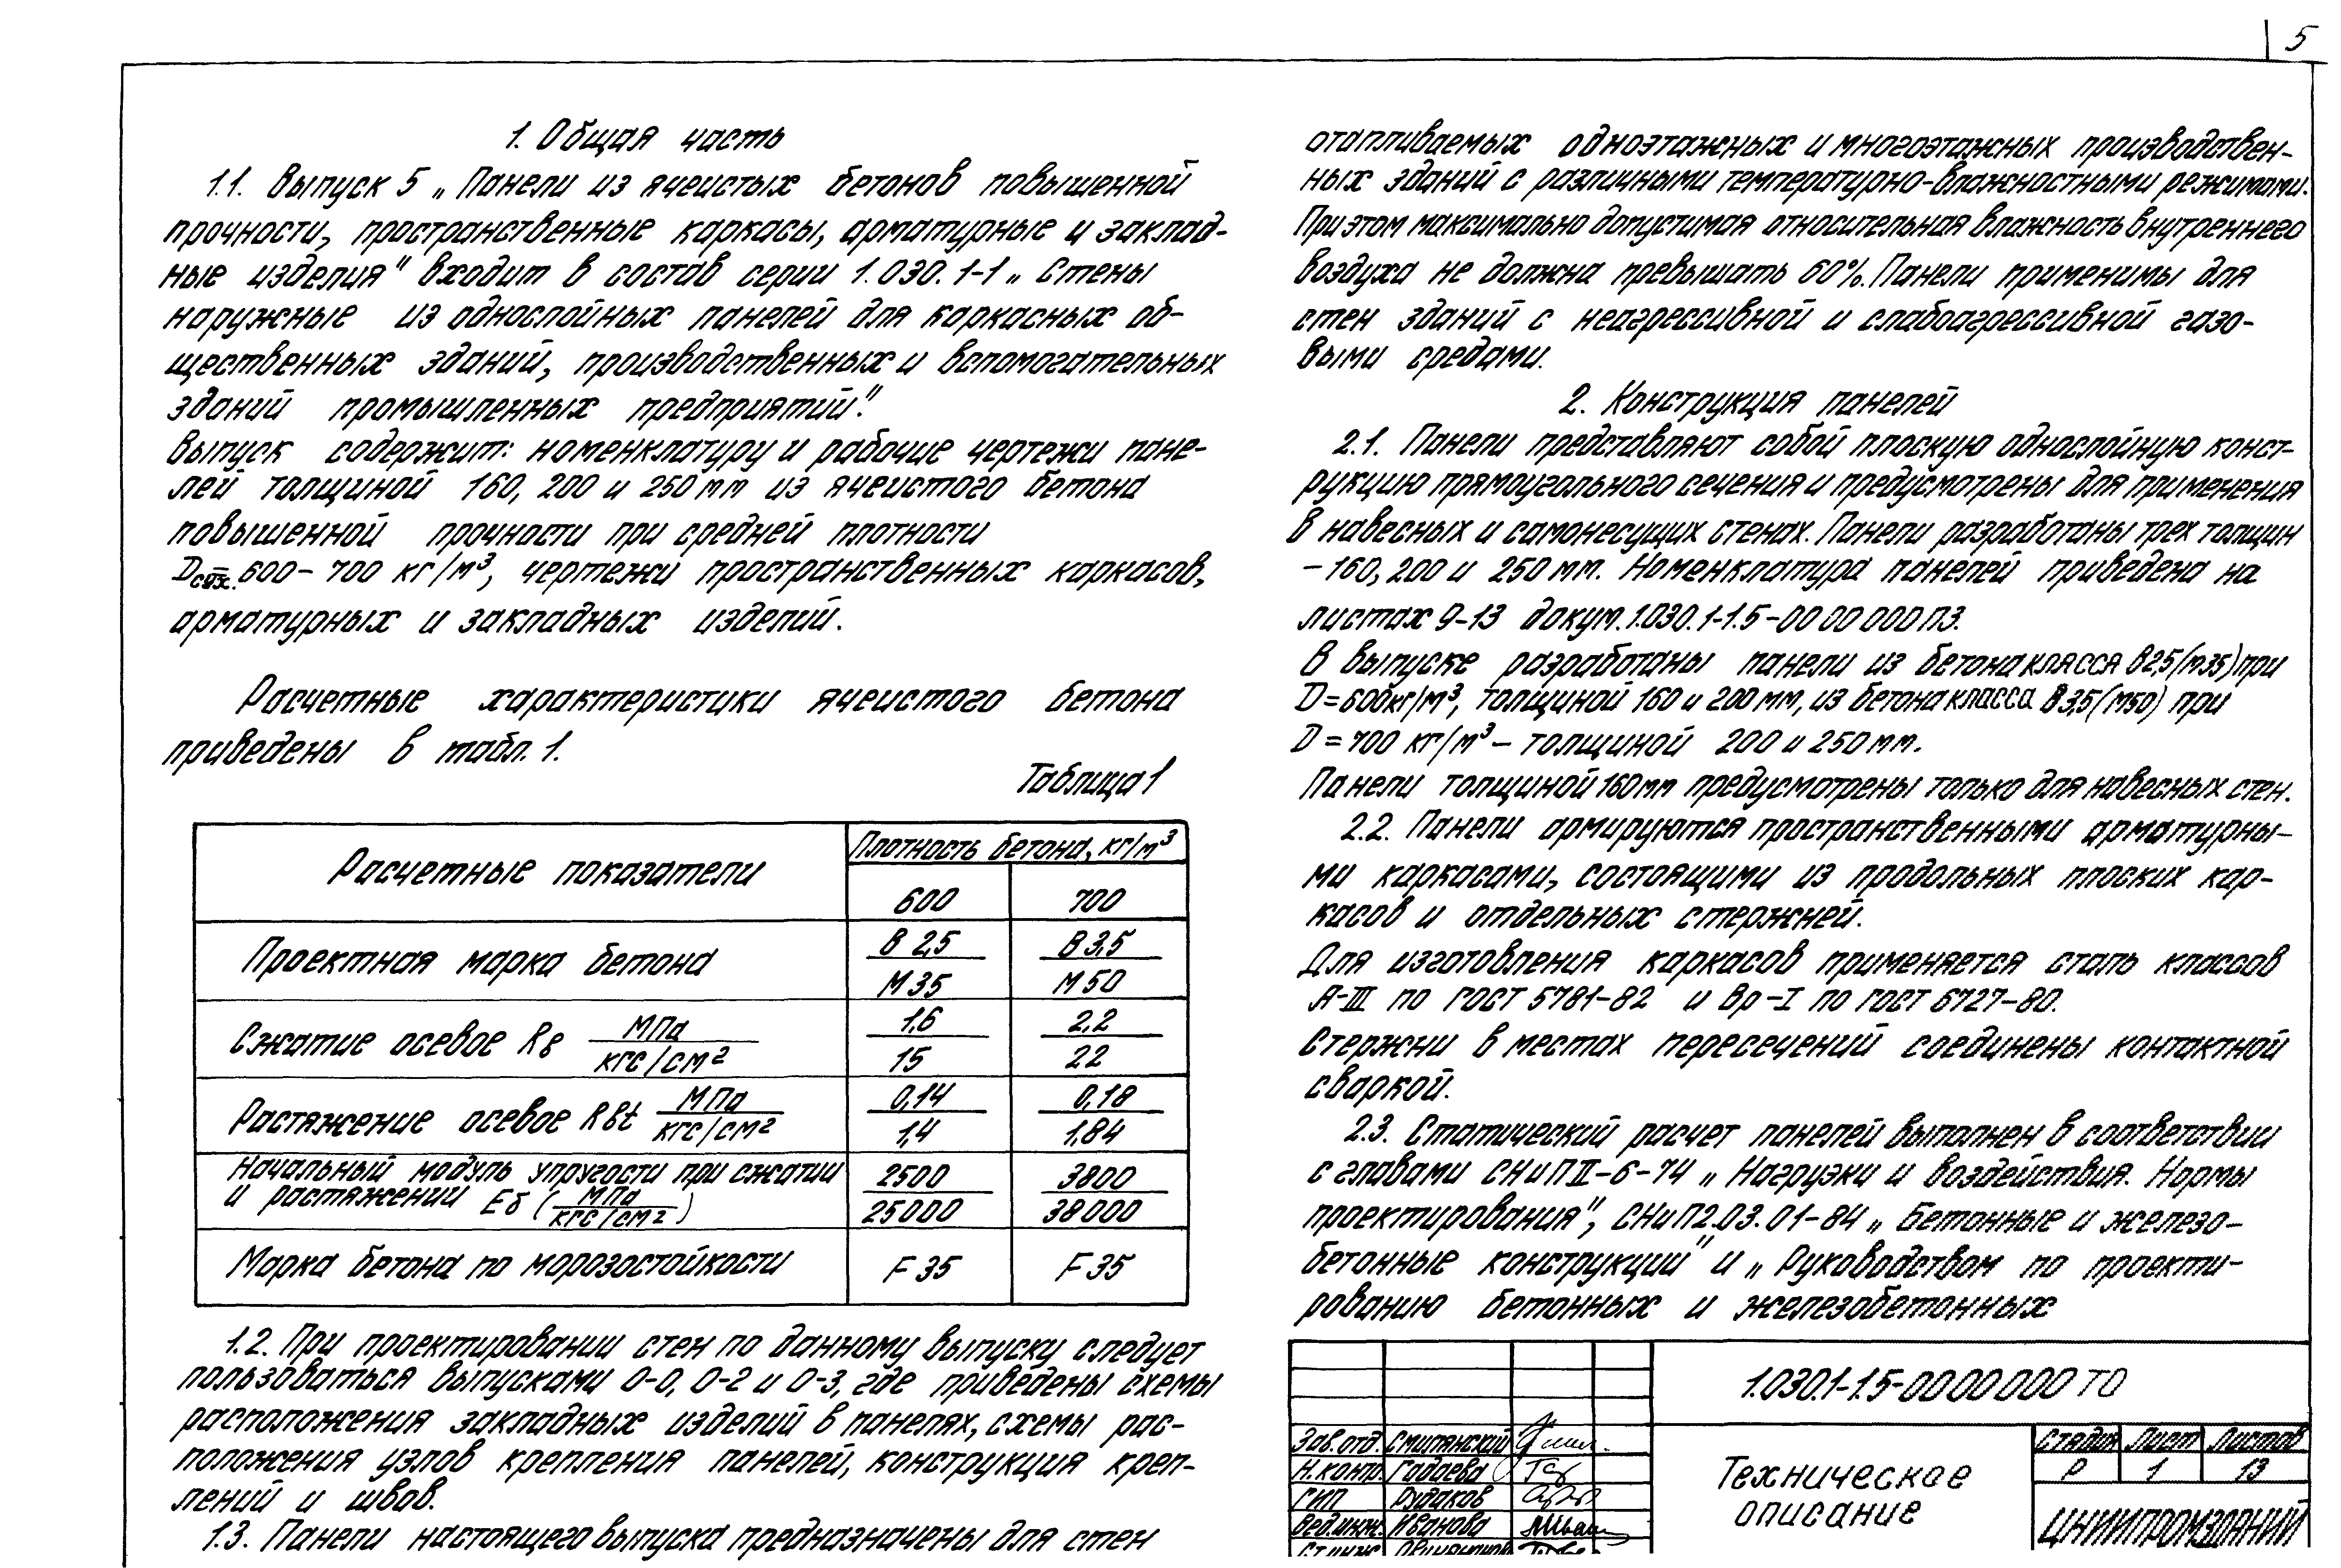 5
1. Общая часть
1.1. Выпуск 5 „Панели из ячеистых бетонов повышенной
прочности, пространственные каркасы, арматурные и заклад-
ные изделия" входит в состав серии 1.030.1-1 „Стены
наружные из однослойных панелей для каркасных об-
щественных зданий, производственных и вспомогательных
зданий промышленных предприятий".
Выпуск содержит: номенклатуру и рабочие чертежи пане-
лей толщиной 160, 200 и 250 мм из ячеистого бетона
повышенной прочности при средней плотности
600-700 кг/м³, чертежи пространственных каркасов,
арматурных и закладных изделий.
Расчетные характеристики ячеистого бетона
приведены в табл. 1.
Таблица 1
Расчетные показатели
Плотность бетона, кг/м³
600 700
Проектная марка бетона В 2,5 / М 35 В 3,5 / М 50
Сжатие осевое Rв МПа / кгс/см² 1,6 / 15 2,2 / 22
Растяжение осевое Rвt МПа / кгс/см² 0,14 / 1,4 0,18 / 1,84
Начальный модуль упругости при сжатии
и растяжении Еб (МПа / кгс/см²) 2500 / 25000 3800 / 38000
Марка бетона по морозостойкости F 35 F 35
1.2. При проектировании стен по данному выпуску следует
пользоваться выпусками 0-0, 0-2 и 0-3, где приведены схемы
расположения закладных изделий в панелях, схемы рас-
положения узлов крепления панелей, конструкция креп-
лений и швов.
1.3. Панели настоящего выпуска предназначены для стен
отапливаемых одноэтажных и многоэтажных производствен-
ных зданий с различными температурно-влажностными режимами.
При этом максимально допустимая относительная влажность внутреннего
воздуха не должна превышать 60%. Панели применимы для
стен зданий с неагрессивной и слабоагрессивной газо-
выми средами.
2. Конструкция панелей
2.1. Панели представляют собой плоскую однослойную конст-
рукцию прямоугольного сечения и предусмотрены для применения
в навесных и самонесущих стенах. Панели разработаны трех толщин
- 160, 200 и 250 мм. Номенклатура панелей приведена на
листах 9-13 докум. 1.030.1-1.5-00 00 000 ПЗ.
В выпуске разработаны панели из бетона класса В2,5 (М35) при
D=600кг/м³, толщиной 160 и 200 мм, из бетона класса В3,5 (М50) при
D=700 кг/м³ - толщиной 200 и 250 мм.
Панели толщиной 160мм предусмотрены только для навесных стен.
2.2. Панели армируются пространственными арматурны-
ми каркасами, состоящими из продольных плоских кар-
касов и отдельных стержней.
Для изготовления каркасов применяется сталь классов
А-III по ГОСТ 5781-82 и Вр-I по ГОСТ 6727-80.
Стержни в местах пересечений соединены контактной
сваркой.
2.3. Статический расчет панелей выполнен в соответствии
с главами СНиП II-6-74 „Нагрузки и воздействия. Нормы
проектирования", СНиП 2.03.01-84 „Бетонные и железо-
бетонные конструкции" и „Руководством по проекти-
рованию бетонных и железобетонных
1.030.1-1.5-00 00 000 ТО
Зав.отд. Смилянский
Н.контр. Гадаева
ГИП Рудаков
Вед.инж. Иванова
Техническое
описание
Стадия Лист Листов
Р 1 13
ЦНИИПРОМЗДАНИЙ